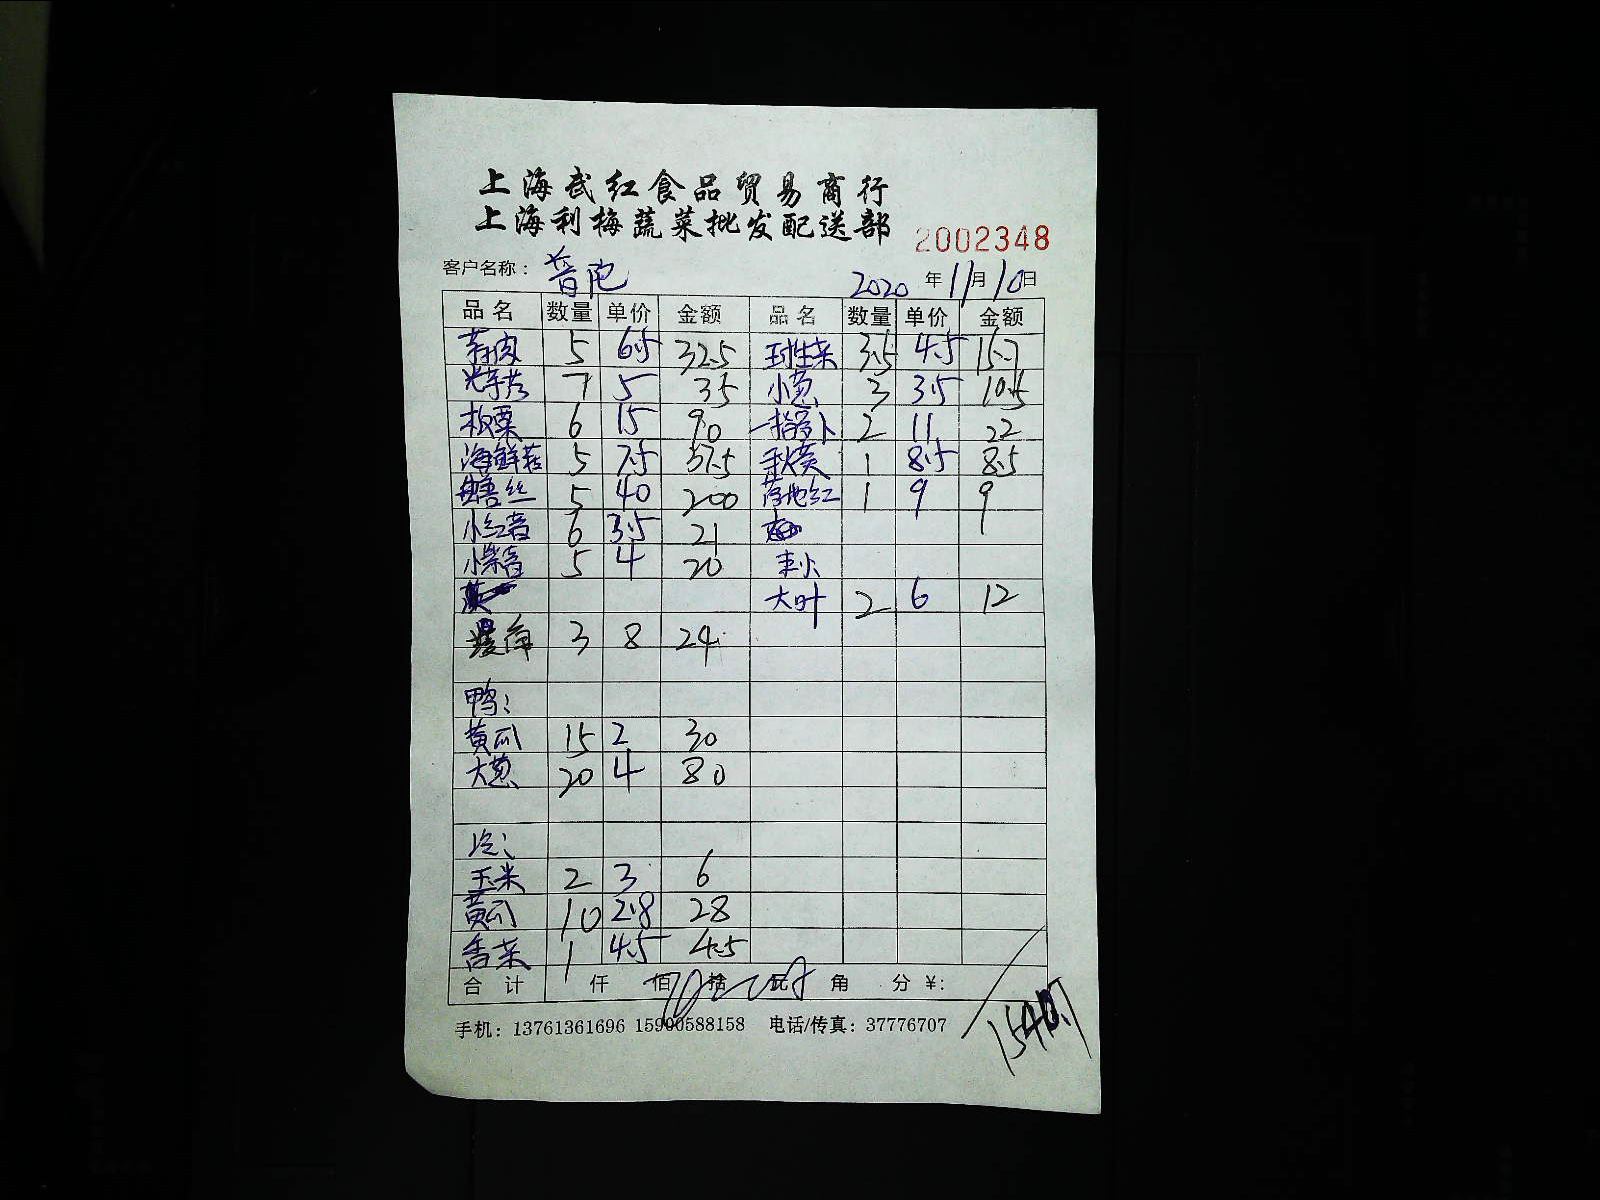 上海武红食品贸易商行
上海利梅蔬菜批发配送部 2002348
客户名称： 普陀 2020 年 11 月 10 日
品名 数量 单价 金额 品名 数量 单价 金额
5 6.5 32.5 球生菜 3.5 4.5 15.7
7 5 35 小葱 3 3.5 10.5
板栗 6 15 90 一指萝卜 2 11 22
海鲜菇 5 7.5 37.5 秋葵 1 8.5 8.5
鳝丝 5 40 200 落地红 1 9 9
小红 6 3.5 21
小紫 5 4 20
大叶 2 6 12
角 3 8 24
鸭：
黄瓜 15 2 30
大葱 20 4 80
冷：
玉米 2 3 6
黄瓜 10 2.8 28
香菜 1 4.5 4.5
合计 仟 佰 拾 元 角 分 ¥:
手机：13761361696 15900588158 电话/传真：37776707